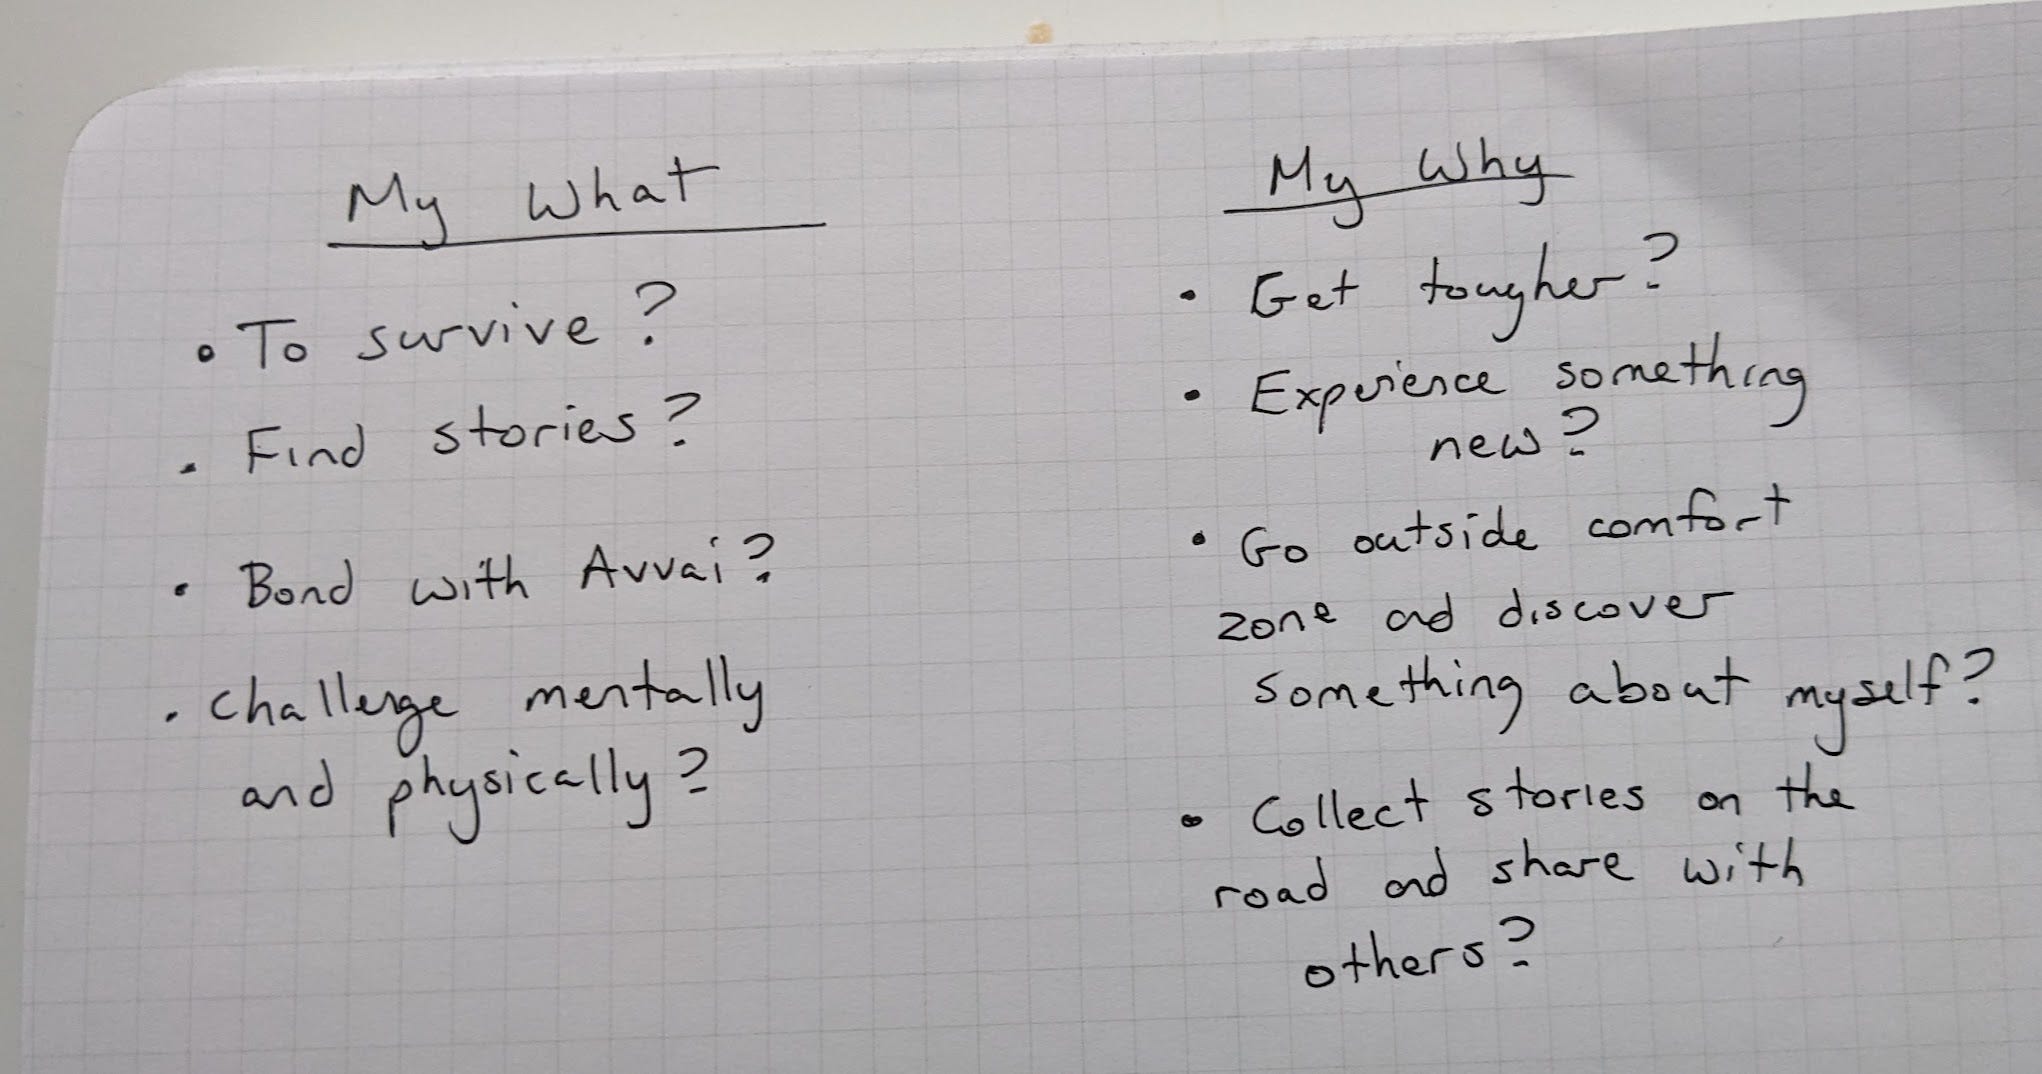 My What
• To survive?
• Find stories?
• Bond with Avvai?
• Challenge mentally
and physically?
My Why
• Get tougher?
• Experience something
new?
• Go outside comfort
zone and discover
something about myself?
• Collect stories on the
road and share with
others?